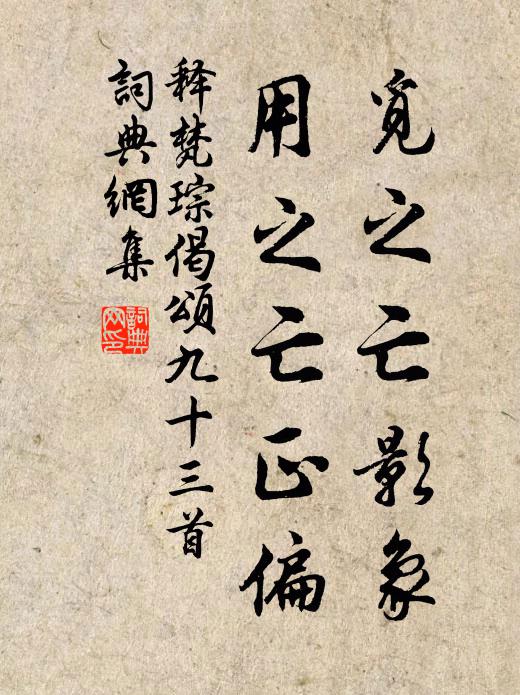 覓之亡影象
用之亡正偏
释梵琮偈頌九十三首
詞典網集
詞典网印